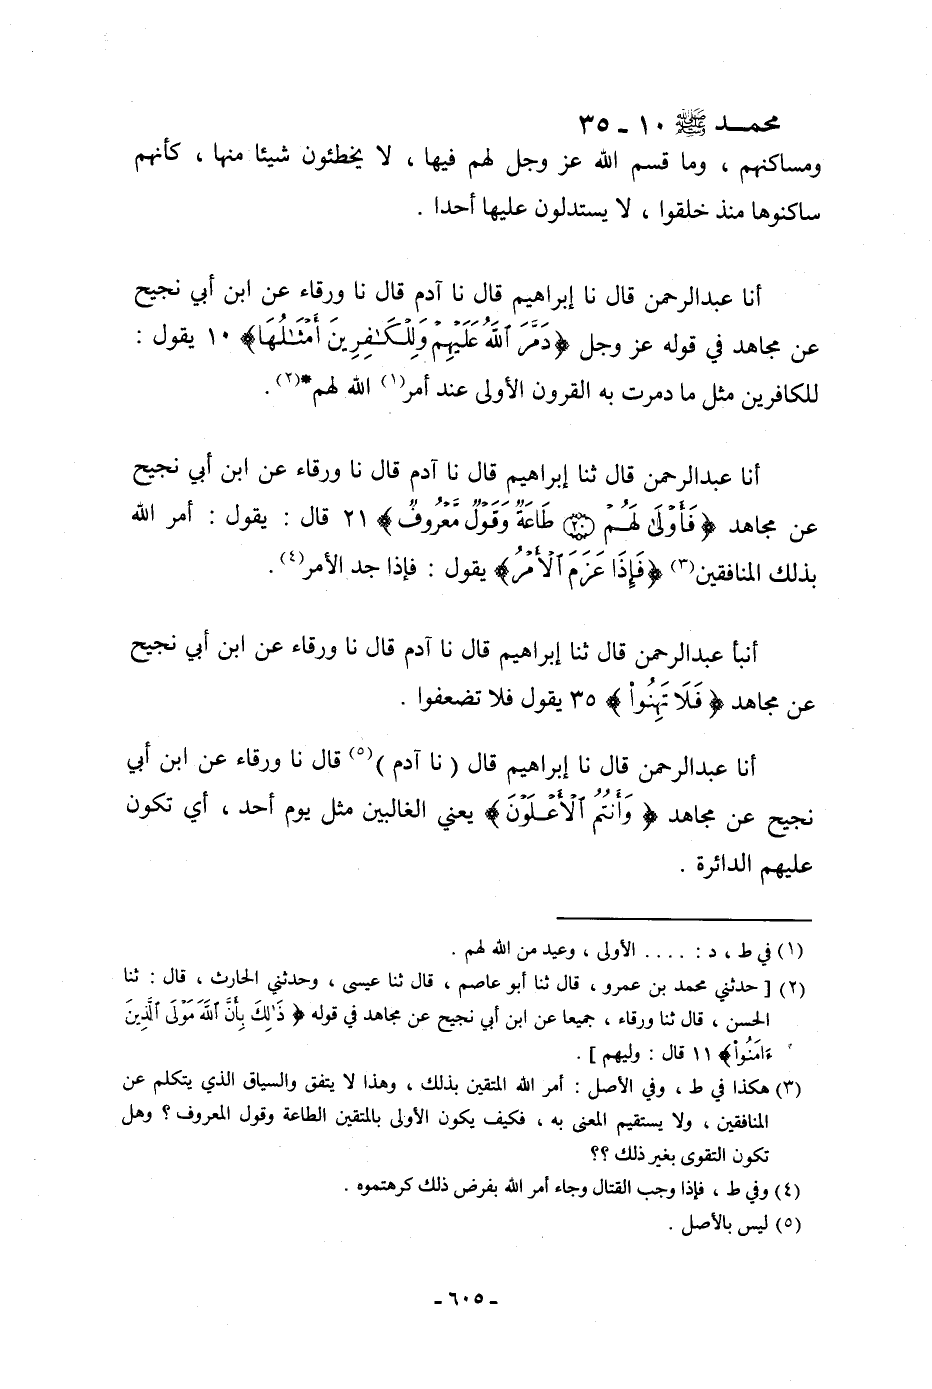 محمـــد ﷺ ١٠ ـ ٣٥
ومساكنهم ، وما قسم الله عز وجل لهم فيها ، لا يخطئون شيئا منها ، كأنهم
ساكنوها منذ خلقوا ، لا يستدلون عليها أحدا .
أنا عبدالرحمن قال نا إبراهيم قال نا آدم قال نا ورقاء عن ابن أبي نجيح
عن مجاهد في قوله عز وجل ﴿دَمَّرَ ٱللَّهُ عَلَيْهِمْ وَلِلْكَـٰفِرِينَ أَمْثَـٰلُهَا﴾ ١٠ يقول :
للكافرين مثل ما دمرت به القرون الأولى عند أمر(١) الله لهم*(٢) .
أنا عبدالرحمن قال ثنا إبراهيم قال نا آدم قال نا ورقاء عن ابن أبي نجيح
عن مجاهد ﴿فَأَوْلَىٰ لَهُـمْ ۝٢٠ طَاعَةٌ وَقَوْلٌ مَّعْرُوفٌ﴾ ٢١ قال : يقول : أمر الله
بذلك المنافقين(٣) ﴿فَإِذَا عَزَمَ ٱلْأَمْرُ﴾ يقول : فإذا جد الأمر(٤) .
أنبأ عبدالرحمن قال ثنا إبراهيم قال نا آدم قال نا ورقاء عن ابن أبي نجيح
عن مجاهد ﴿ فَلَا تَهِنُواْ ﴾ ٣٥ يقول فلا تضعفوا .
أنا عبدالرحمن قال نا إبراهيم قال ( نا آدم )(٥) قال نا ورقاء عن ابن أبي
نجيح عن مجاهد ﴿ وَأَنتُمُ ٱلْأَعْـلَوْنَ﴾ يعني الغالبين مثل يوم أحد ، أي تكون
عليهم الدائرة .
(١) في ط ، د : .... الأولى ، وعيد من الله لهم .
(٢) [ حدثني محمد بن عمرو ، قال ثنا أبو عاصم ، قال ثنا عيسى ، وحدثني الحارث ، قال : ثنا
الحسن ، قال ثنا ورقاء ، جميعا عن ابن أبي نجيح عن مجاهد في قوله ﴿ ذَٰلِكَ بِأَنَّ ٱللَّهَ مَوْلَى ٱلَّذِينَ
ءَامَنُواْ﴾ ١١ قال : وليهم ] .
(٣) هكذا في ط ، وفي الأصل : أمر الله المتقين بذلك ، وهذا لا يتفق والسياق الذي يتكلم عن
المنافقين ، ولا يستقيم المعنى به ، فكيف يكون الأولى بالمتقين الطاعة وقول المعروف ؟ وهل
تكون التقوى بغير ذلك ؟؟
(٤) وفي ط ، فإذا وجب القتال وجاء أمر الله بفرض ذلك كرهتموه .
(٥) ليس بالأصل .
ـ ٦٠٥ ـ